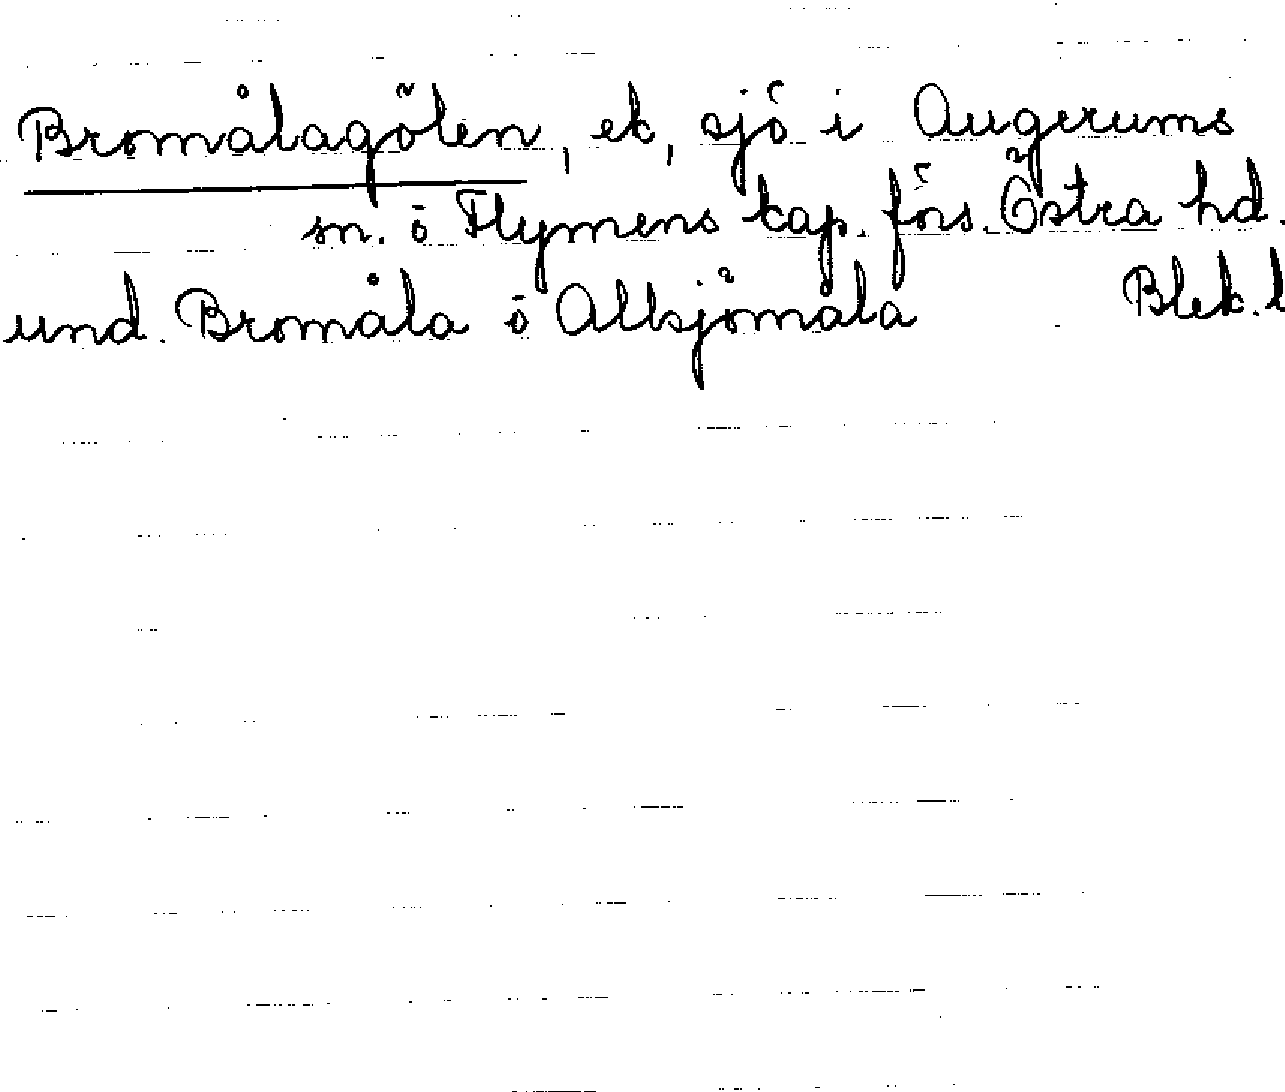 Bromålagölen, ek, sjö i Augerums
sn. o Flymens kap. förs. Östra hd.
und. Bromåla o Allsjömåla Blek. l